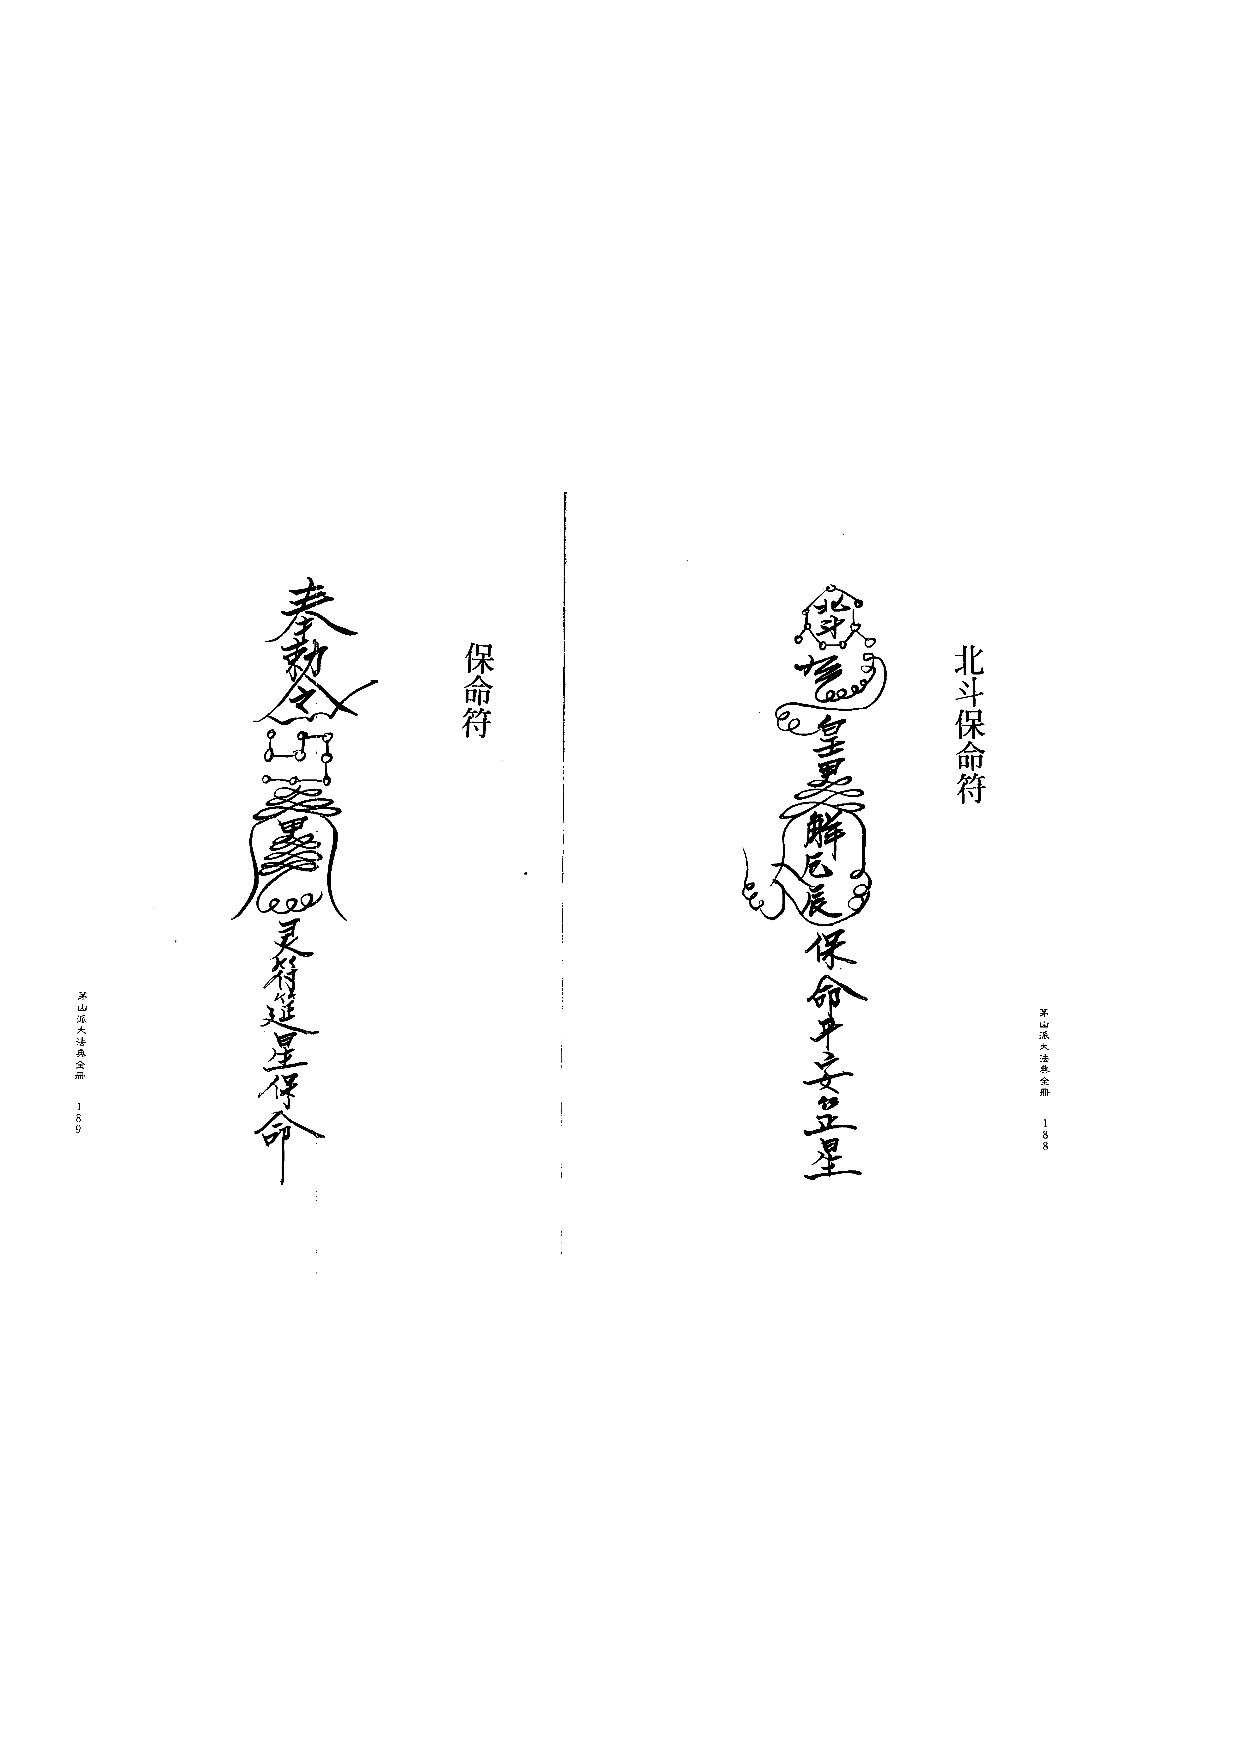 北斗保命符
北斗
皇
解厄辰保命平安
星
茅山派大法典全冊 188
保命符
奉勅令
灵符
星保命
茅山派大法典全冊 189